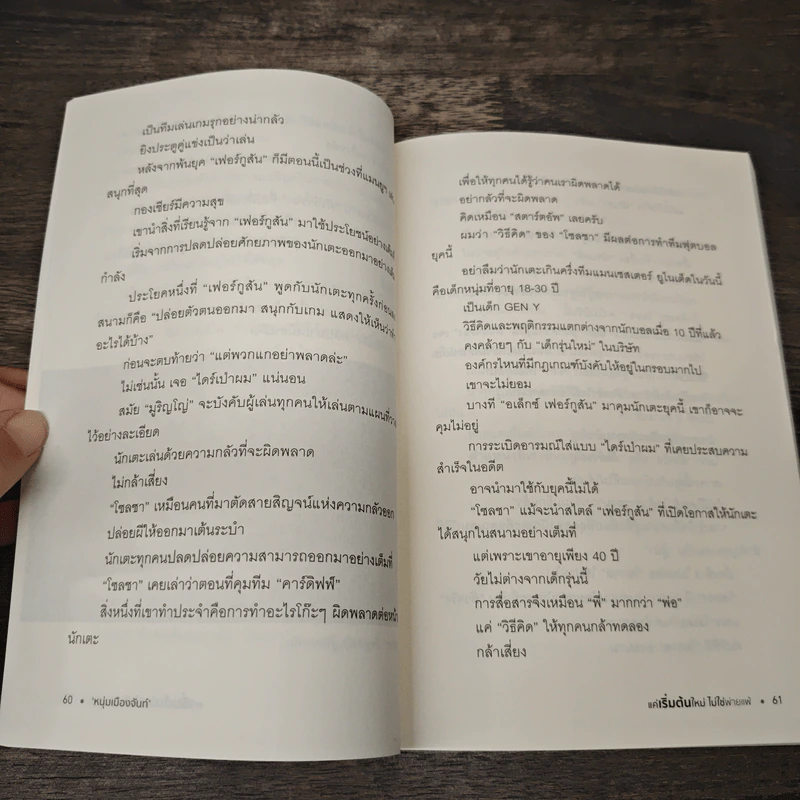 เป็นทีมเล่นเกมรุกอย่างน่ากลัว
ยิงประตูคู่แข่งเป็นว่าเล่น
หลังจากพ้นยุค “เฟอร์กูสัน” ก็มีตอนนี้เป็นช่วงที่แมนยูฯ
สนุกที่สุด
กองเชียร์มีความสุข
เขานำสิ่งที่เรียนรู้จาก “เฟอร์กูสัน” มาใช้ประโยชน์อย่างเต็มที่
เริ่มจากการปลดปล่อยศักยภาพของนักเตะออกมาอย่างเต็ม
กำลัง
ประโยคหนึ่งที่ “เฟอร์กูสัน” พูดกับนักเตะทุกครั้งก่อน
สนามก็คือ “ปล่อยตัวตนออกมา สนุกกับเกม แสดงให้เห็นว่า
อะไรได้บ้าง”
ก่อนจะตบท้ายว่า “แต่พวกแกอย่าพลาดล่ะ”
ไม่เช่นนั้น เจอ “ไดร์เป่าผม” แน่นอน
สมัย “มูริญโญ่” จะบังคับผู้เล่นทุกคนให้เล่นตามแผนที่วาง
ไว้อย่างละเอียด
นักเตะเล่นด้วยความกลัวที่จะผิดพลาด
ไม่กล้าเสี่ยง
“โซลชา” เหมือนคนที่มาตัดสายสิญจน์แห่งความกลัวออก
ปล่อยผีให้ออกมาเต้นระบำ
นักเตะทุกคนปลดปล่อยความสามารถออกมาอย่างเต็มที่
“โซลชา” เคยเล่าว่าตอนที่คุมทีม “คาร์ดิฟฟ์”
สิ่งหนึ่งที่เขาทำประจำคือการทำอะไรโก๊ะๆ ผิดพลาดต่อหน้า
นักเตะ
60 • ‘หนุ่มเมืองจันท์’
เพื่อให้ทุกคนได้รู้ว่าคนเราผิดพลาดได้
อย่ากลัวที่จะผิดพลาด
คิดเหมือน “สตาร์ตอัพ” เลยครับ
ผมว่า “วิธีคิด” ของ “โซลชา” มีผลต่อการทำทีมฟุตบอล
ยุคนี้
อย่าลืมว่านักเตะเกินครึ่งทีมแมนเชสเตอร์ ยูไนเต็ดในวันนี้
คือเด็กหนุ่มที่อายุ 18-30 ปี
เป็นเด็ก GEN Y
วิธีคิดและพฤติกรรมแตกต่างจากนักบอลเมื่อ 10 ปีที่แล้ว
คงคล้ายๆ กับ “เด็กรุ่นใหม่” ในบริษัท
องค์กรไหนที่มีกฎเกณฑ์บังคับให้อยู่ในกรอบมากไป
เขาจะไม่ยอม
บางที “อเล็กซ์ เฟอร์กูสัน” มาคุมนักเตะยุคนี้ เขาก็อาจจะ
คุมไม่อยู่
การระเบิดอารมณ์ใส่แบบ “ไดร์เป่าผม” ที่เคยประสบความ
สำเร็จในอดีต
อาจนำมาใช้กับยุคนี้ไม่ได้
“โซลชา” แม้จะนำสไตล์ “เฟอร์กูสัน” ที่เปิดโอกาสให้นักเตะ
ได้สนุกในสนามอย่างเต็มที่
แต่เพราะเขาอายุเพียง 40 ปี
วัยไม่ต่างจากเด็กรุ่นนี้
การสื่อสารจึงเหมือน “พี่” มากกว่า “พ่อ”
แค่ “วิธีคิด” ให้ทุกคนกล้าทดลอง
กล้าเสี่ยง
แค่เริ่มต้นใหม่ ไม่ใช่พ่ายแพ้ • 61